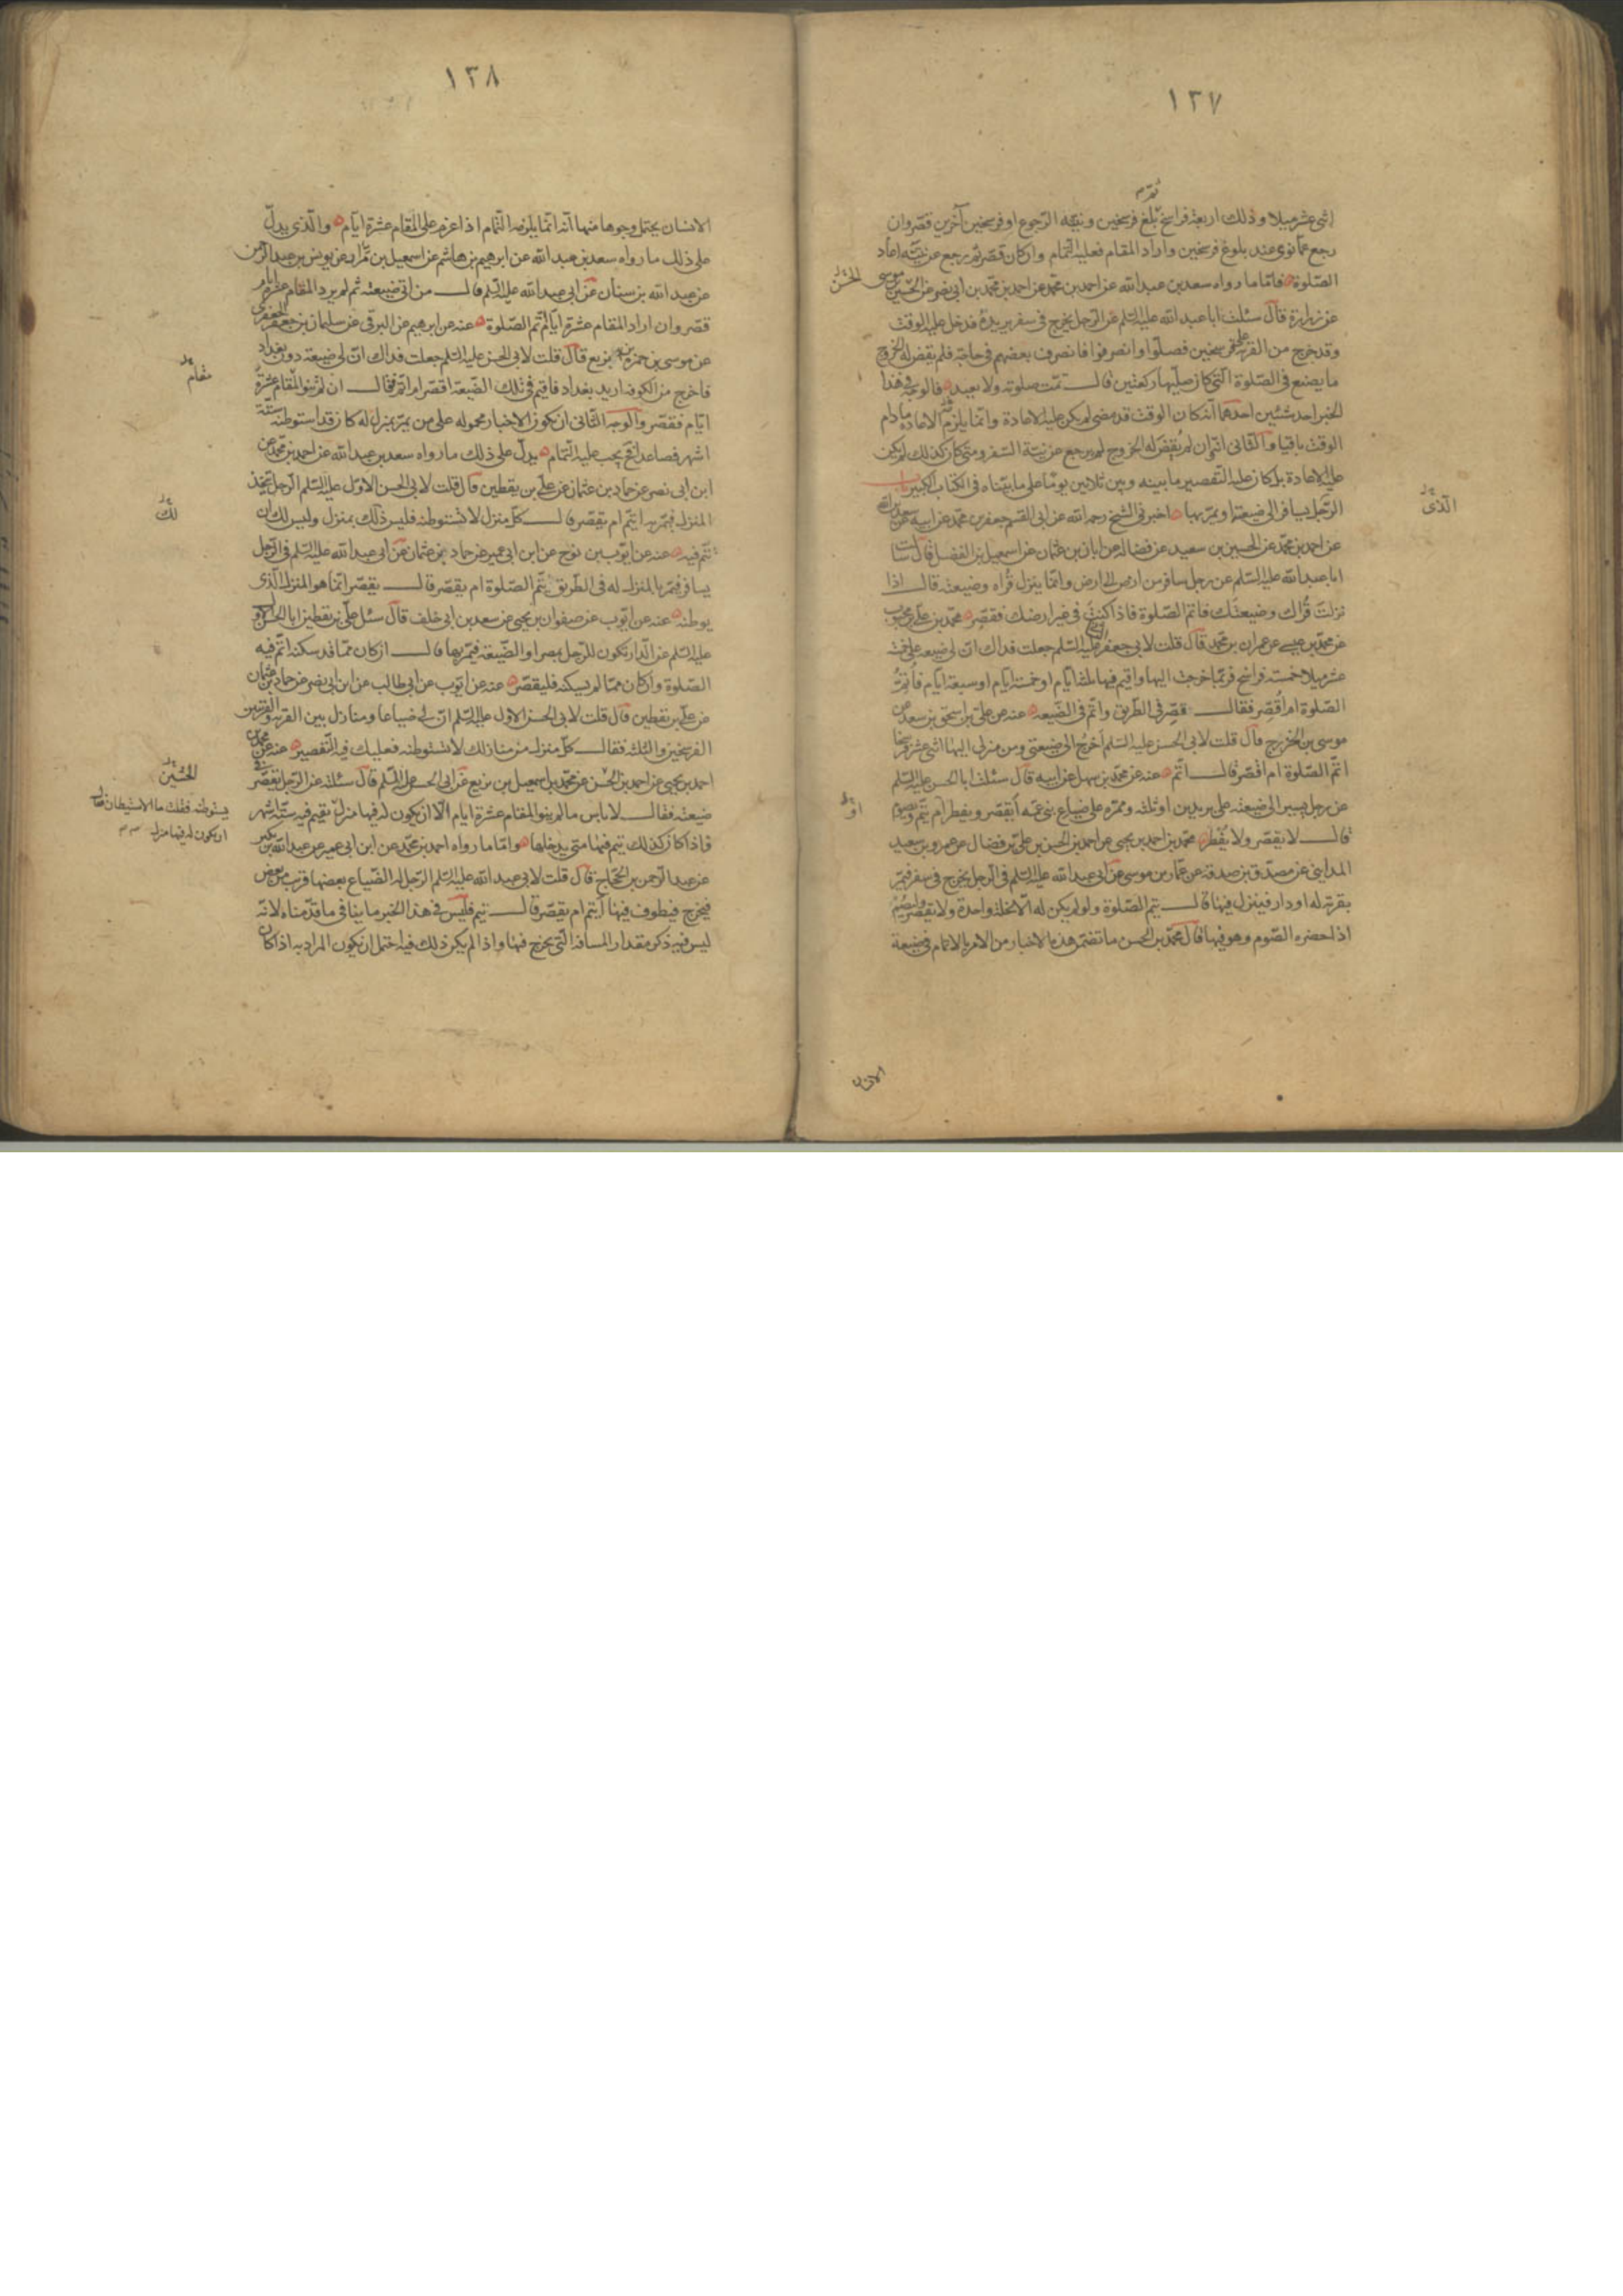 ١٣٧
اثنى عشر ميلا وذلك اربعة فراسخ بلغ فرسخين ونيته الرجوع او فرسخين آخرين قصر وان
رجع عما نوى عند بلوغ فرسخين واراد المقام فعليه التمام وان كان قصر ثم رجع عن نيته اعاد
الصلوة فاما ما رواه سعد بن عبد الله عن احمد بن محمد عن احمد بن محمد بن ابى نصر عن الحسين بن موسى
الحسن
عن زرارة قال سئلت ابا عبد الله عليه السلم عن الرجل يخرج فى سفر يريده فدخل عليه الوقت
وقد خرج من القرية على فرسخين فصلوا وانصرفوا فانصرف بعضهم فى حاجة فلم يقض له الخروج
ما يصنع فى الصلوة التى كان صليها ركعتين قال تمت صلوته ولا يعيد فالوجه فى هذا
الخبر احد شيئين احدهما انه كان الوقت قد مضى لم يكن عليه الاعادة وانما يلزم الاعادة ما دام
الوقت باقيا والثانى انه وان لم يقض له الخروج لم يرجع عن نية السفر ومتى كان كذلك لم يكن
عليه الاعادة بل كان عليه التقصير ما بينه وبين ثلاثين يوما على ما بيناه فى الكتاب الكبير باب
الرجل يسافر الى ضيعته او يمر بها اخبرنى الشيخ رحمه الله عن ابى القسم جعفر بن محمد عن ابيه عن سعد بن عبد الله
الذى
عن احمد بن محمد عن الحسين بن سعيد عن فضالة عن ابان بن عثمان عن اسمعيل بن الفضل قال سألت
ابا عبد الله عليه السلم عن رجل سافر من ارض الى ارض وانما ينزل قراه وضيعته قال اذا
نزلت قراك وضيعتك فاتم الصلوة فاذا كنت فى غير ارضك فقصر محمد بن على بن محبوب
عن محمد بن عيسى عن عمران بن محمد قال قلت لابى جعفر الثانى عليه السلم جعلت فداك ان لى ضيعة على خمسة
عشر ميلا خمسة فراسخ فربما خرجت اليها واقيم فيها ثلثة ايام او خمسة ايام او سبعة ايام فاتم
الصلوة ام اقصر فقال قصر فى الطريق واتم فى الضيعة عنه عن على بن اسحق بن سعد عن
موسى بن الخزرج قال قلت لابى الحسن عليه السلم اخرج الى ضيعتى ومن منزلى اليها اثنى عشر فرسخا
اتم الصلوة ام اقصر قال اتم عنه عن محمد بن سهل عن ابيه قال سئلت ابا الحسن عليه السلم
عن رجل يسير الى ضيعته على بريدين او ثلثة وممره على ضياع بنى عمه ايقصر ويفطر ام يتم ويصوم
او
قال لا يقصر ولا يفطر محمد بن احمد بن يحيى عن احمد بن الحسن بن على بن فضال عن عمرو بن سعيد
المداينى عن مصدق بن صدقة عن عمار بن موسى عن ابى عبد الله عليه السلم فى الرجل يخرج فى سفر فيمر
بقرية له او دار فينزل فيها قال يتم الصلوة ولو لم يكن له الا نخلة واحدة ولا يقصر وليصم
اذا حضره الصوم وهو فيها قال محمد بن الحسن ما تضمن هذه الاخبار من الامر بالاتمام فى ضيعة
الانسان
١٣٨
الانسان يحتمل وجوها منها انه انما يلزمه التمام اذا عزم على المقام عشرة ايام والذى يدل
على ذلك ما رواه سعد بن عبد الله عن ابرهيم بن هاشم عن اسمعيل بن مرار عن يونس بن عبد الرحمن
عن عبد الله بن سنان عن ابى عبد الله عليه السلم قال من اتى ضيعته ثم لم يرد المقام عشرة ايام
قصر وان اراد المقام عشرة ايام اتم الصلوة عنه عن ابرهيم عن البرقى عن سليمان بن جعفر الجعفرى
عن موسى بن حمزة بن بزيع قال قلت لابى الحسن عليه السلم جعلت فداك ان لى ضيعة دون بغداد
مقام
فاخرج من الكوفة اريد بغداد فاقيم فى تلك الضيعة اقصر ام اتم فقال ان لم تنو المقام عشرة
ايام فقصر والوجه الثانى ان تكون الاخبار محموله على من يمر بمنزل له كان قد استوطنه ستة
اشهر فصاعدا فح يجب عليه التمام يدل على ذلك ما رواه سعد بن عبد الله عن احمد بن محمد عن
ابن ابى نصر عن حماد بن عثمان عن على بن يقطين قال قلت لابى الحسن الاول عليه السلم الرجل يتخذ
المنزل فيمر به ايتم ام يقصر قال كل منزل لا تستوطنه فليس ذلك بمنزل وليس لك ان
لك
تتم فيه عنه عن ايوب بن نوح عن ابن ابى عمير عن حماد بن عثمان عن ابى عبد الله عليه السلم فى الرجل
يسافر فيمر بالمنزل له فى الطريق يتم الصلوة ام يقصر قال يقصر انما هو المنزل الذى
يوطنه عنه عن ايوب عن صفوان بن يحيى عن سعد بن ابى خلف قال سئل على بن يقطين ابا الحسن الاول
عليه السلم عن الدار تكون للرجل بمصر او الضيعة فيمر بها قال ان كان مما قد سكنه اتم فيه
الصلوة وان كان مما لم يسكنه فليقصر عنه عن ايوب عن ابى طالب عن ابن ابى نصر عن حماد بن عثمان
عن على بن يقطين قال قلت لابى الحسن الاول عليه السلم ان لى ضياعا ومنازل بين القرية والقريتين
الفرسخين والثلثة فقال كل منزل من منازلك لا تستوطنه فعليك فيه التقصير عنه عن محمد بن
احمد بن يحيى عن احمد بن الحسن عن محمد بن اسمعيل بن بزيع عن ابى الحسن عليه السلم قال سئلته عن الرجل يقصر فى
الحسين
ضيعته فقال لا باس ما لم ينو المقام عشرة ايام الا ان يكون له فيها منزل يقيم فيه ستة اشهر
يستوطنه فقلت ما الاستيطان فقال
ان يكون له فيها منزل
فاذا كان كذلك يتم فيها متى يدخلها واما ما رواه احمد بن محمد عن ابن ابى عمير عن عبد الله بن بكير
عن عبد الرحمن بن الحجاج قال قلت لابى عبد الله عليه السلم الرجل له الضياع بعضها قرب من بعض
فيخرج فيطوف فيها ايتم ام يقصر قال يتم فليس فى هذا الخبر ما ينافى ما قدمناه لانه
ليس فيه ذكر مقدار المسافة التى يخرج فيها واذا لم يكن ذلك فيه احتمل ان يكون المراد به اذا كان